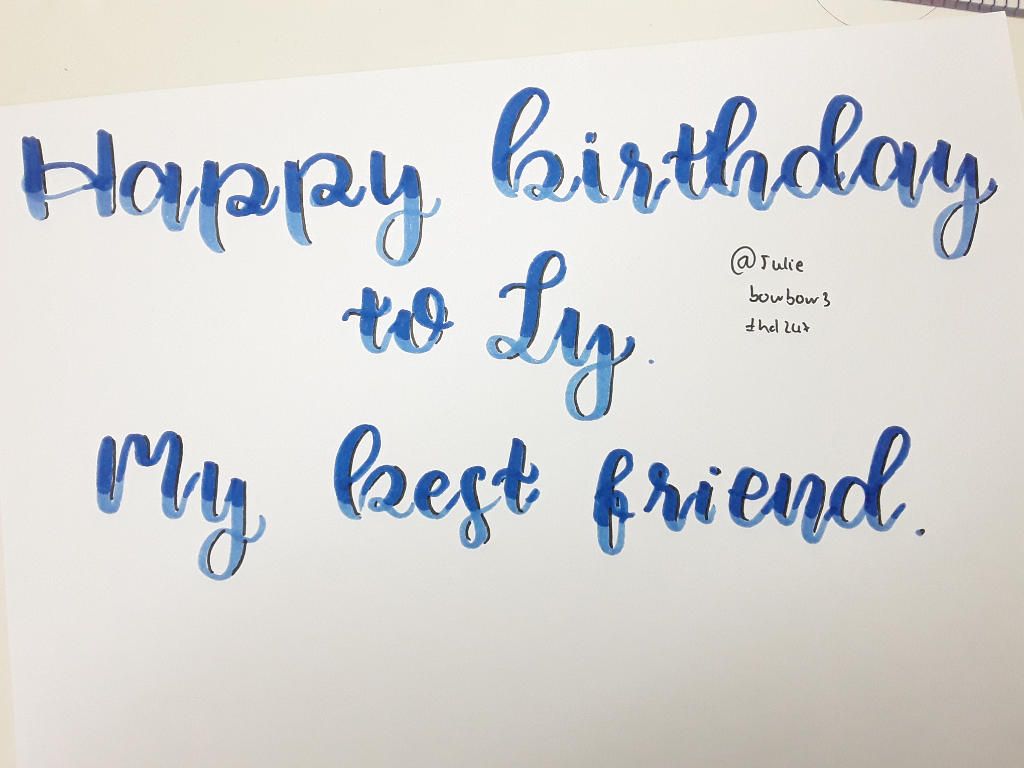 Happy birthday
to Ly.
@Julie
bowbow3
thd247
My best friend.